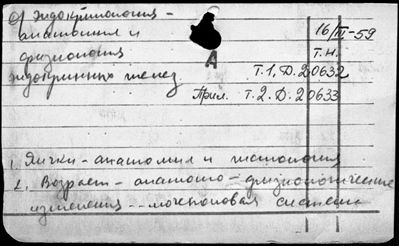 а) Эндокринология -
анатомия и
физиология
эндокринных желез.
16/III-59
Т.Н.
А
Т.1, Д.20632
Прил. Т.2. Д.20633
1. Яички - анатомия и гистология
2. Возраст - анатомо-физиологические
изменения -- мочеполовая система